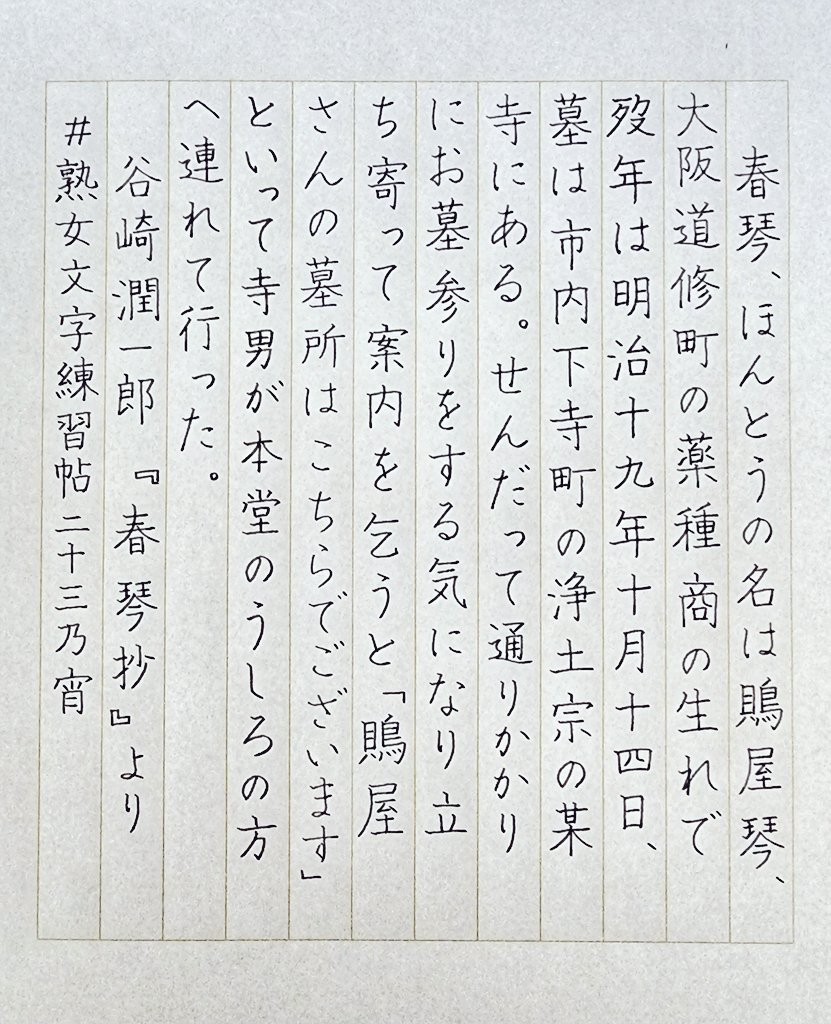 春琴、ほんとうの名は鵙屋琴、
大阪道修町の薬種商の生れで
歿年は明治十九年十月十四日、
墓は市内下寺町の浄土宗の某
寺にある。せんだって通りかかり
にお墓参りをする気になり立
ち寄って案内を乞うと「鵙屋
さんの墓所はこちらでございます」
といって寺男が本堂のうしろの方
へ連れて行った。
谷崎潤一郎『春琴抄』より
#熟女文字練習帖二十三乃宵